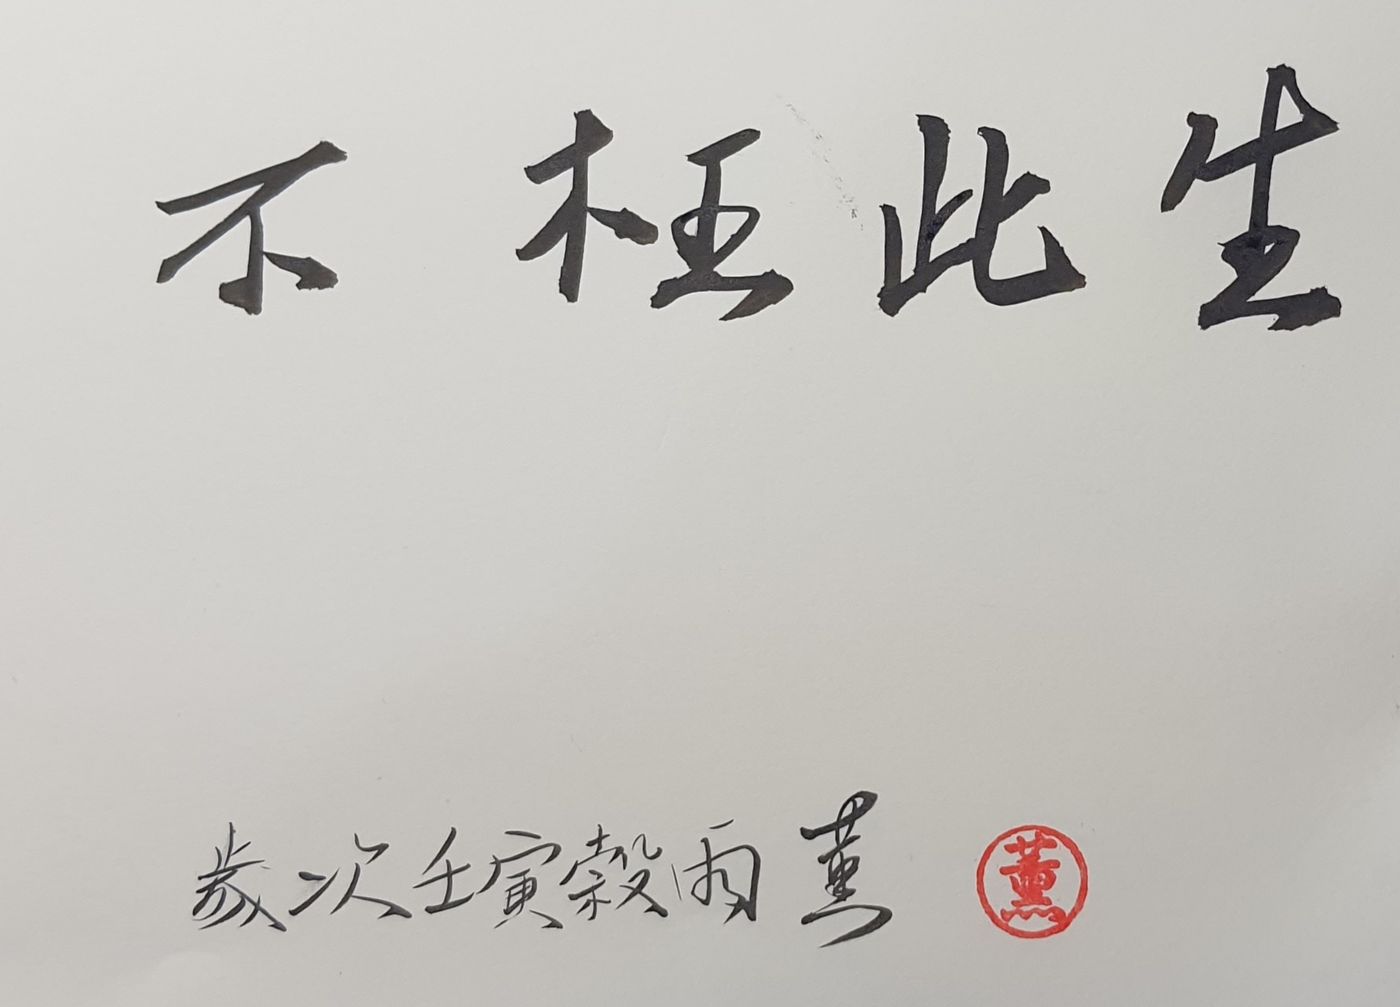 不枉此生
歲次壬寅穀雨 薰
薰